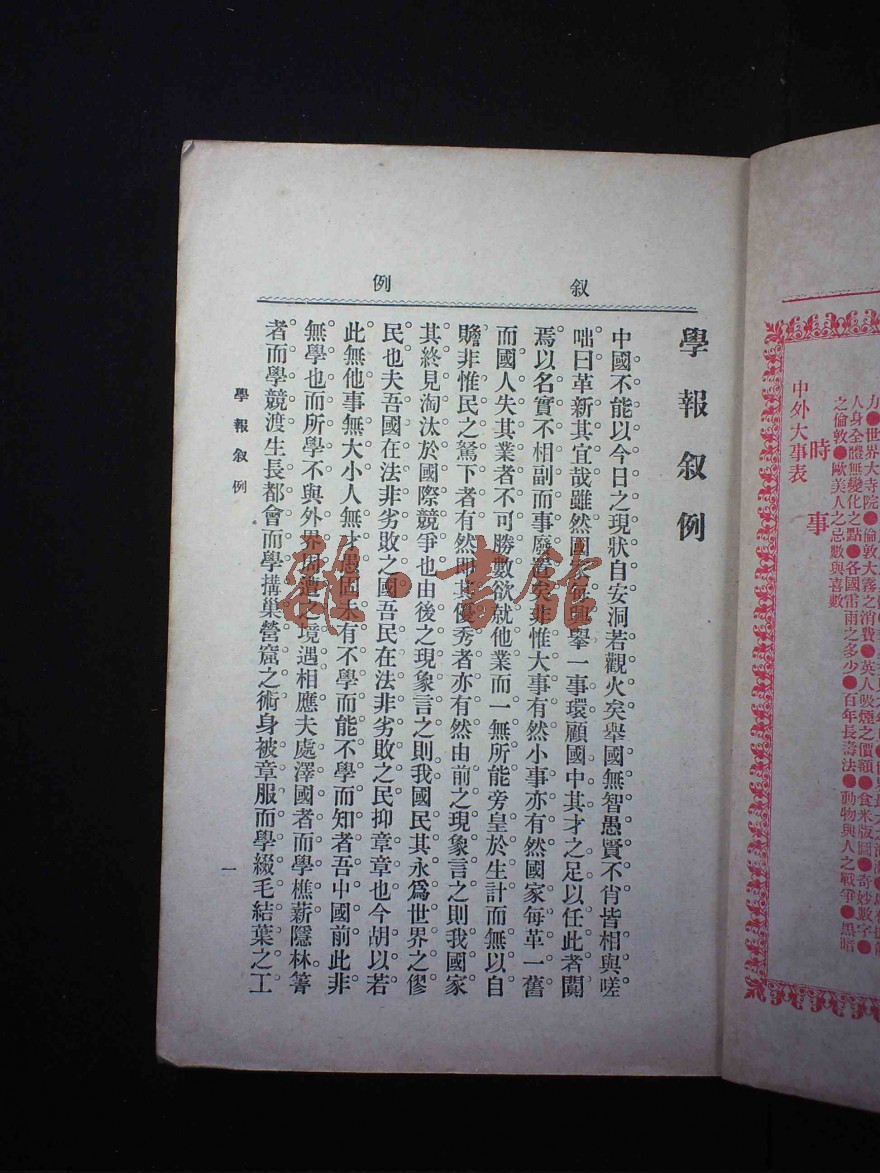 力●世界大寺院●倫敦大霧之消費●英人吸煙之價額●食米版圖●奇妙數字●
人身全體無變化之點●各國雷雨之多少●百年長壽法●動物與人之戰爭●黑暗
之倫敦●歐美人之忌數與喜數
時事
中外大事表
叙例
學報敘例
中國不能以今日之現狀自安洞若觀火矣舉國無智愚賢不肖皆相與嗟
咄曰革新其宜哉雖然國興舉一事環顧國中其才之足以任此者闃
焉以名實不相副而事廢者矣非惟大事有然小事亦有然國家每革一舊
而國人失其業者不可勝數欲就他業而一無所能旁皇於生計而無以自
贍非惟民之駑下者有然即其優秀者亦有然由前之現象言之則我國家
其終見淘汰於國際競爭也由後之現象言之則我國民其永爲世界之僇
民也夫吾國在法非劣敗之國吾民在法非劣敗之民抑章章也今胡以若
此無他事無大小人無才愚固未有不學而能不學而知者吾中國前此非
無學也而所學不與外界周遭之境遇相應夫處澤國者而學樵薪隱林箐
者而學競渡生長都會而學搆巢營窟之術身被章服而學綴毛結葉之工
學報敘例
一
雜·書館